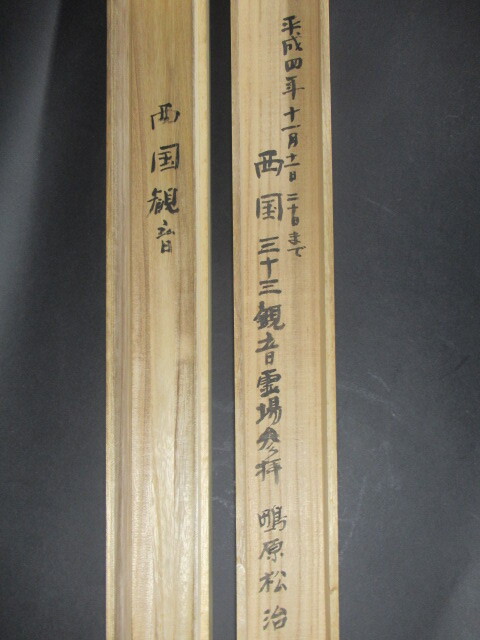 平成四年十一月十一日 二十日まで
西国三十三観音霊場参拝 鴨原松治
西国観音